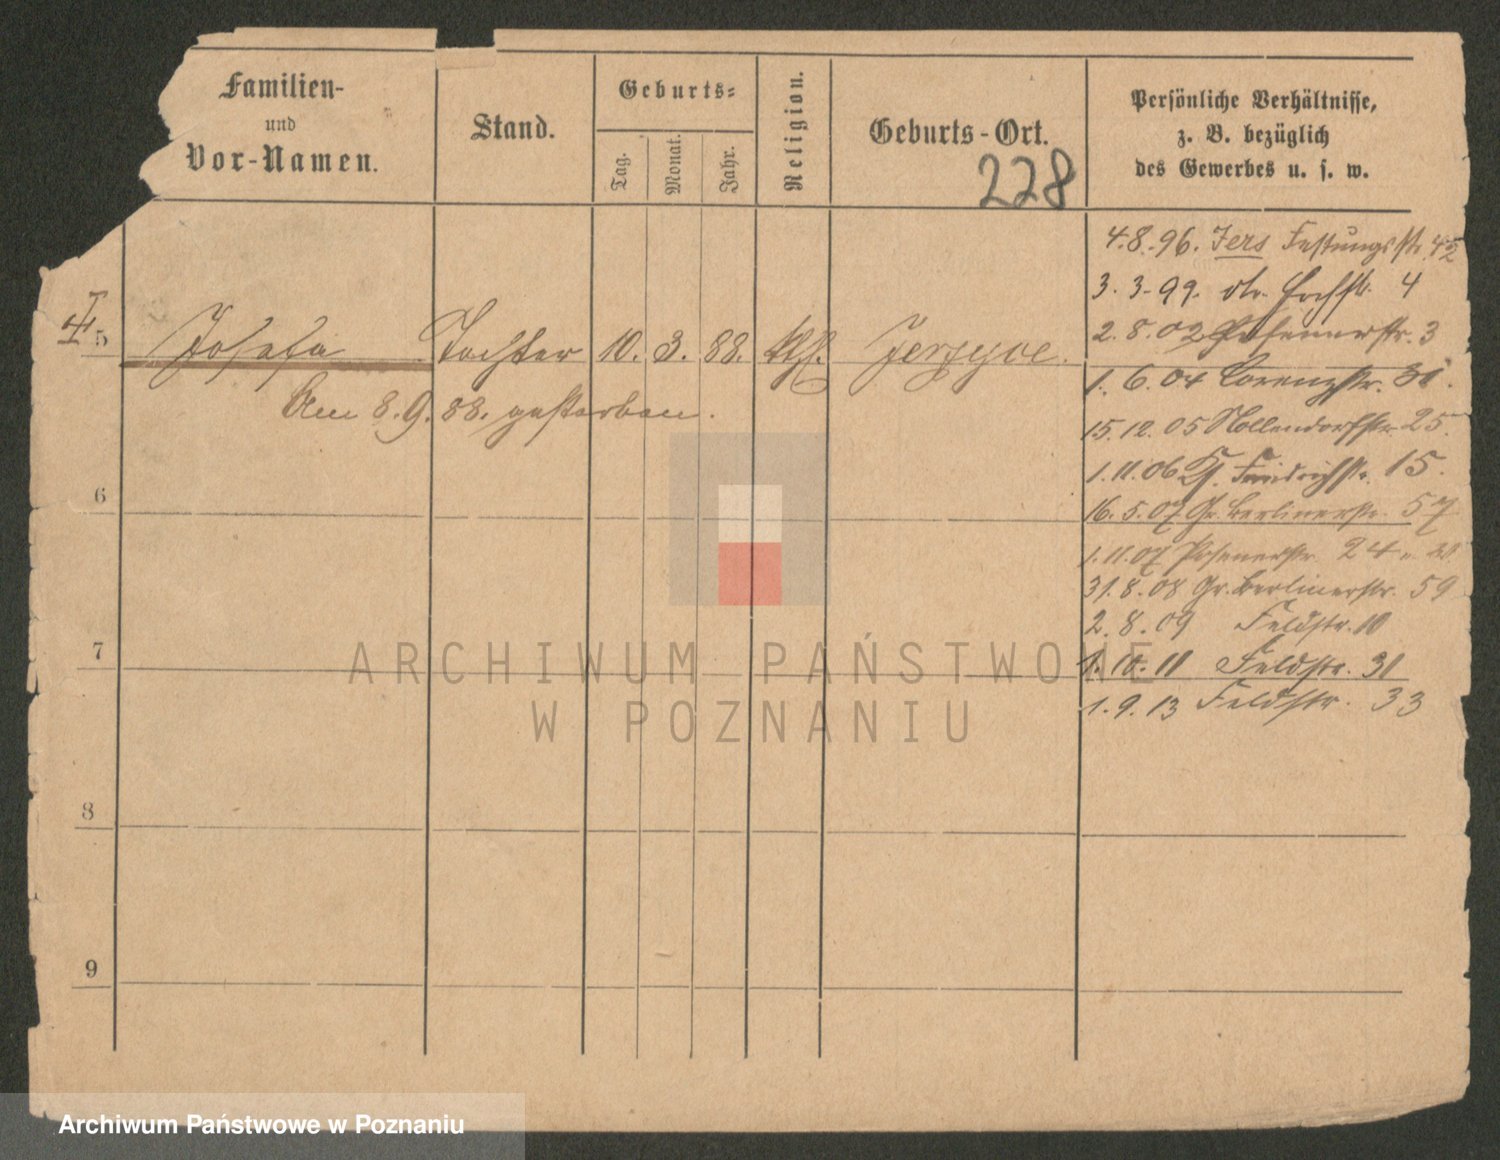 Familien-
und
Vor-Namen.
Stand.
Geburts-
Tag.
Monat.
Jahr.
Religion.
Geburts-Ort.
228
Persönliche Verhältnisse,
z. B. bezüglich
des Gewerbes u. s. w.
5 Josefa Tochter 10. 3. 88. kth. Jerzyce.
Am 8. 9. 88. gestorben.
6
7
8
9
4.8.96. Jers Festungsstr. 42
3.3.99. do. Hochstr. 4
2.8.02 Posenerstr. 3
1.6.04 Lorenzstr. 31.
15.12.05 Nollendorfstr. 25.
1.11.06 Kl. Friedrichstr. 15.
16.5.07 Gr. Berlinerstr. 57
1.11.07 Posenerstr. 24
31.8.08 Gr. Berlinerstr. 59
2.8.09 Feldstr. 10
1.10.11 Feldstr. 31
1.9.13 Feldstr. 33
ARCHIWUM PAŃSTWOWE
W POZNANIU
Archiwum Państwowe w Poznaniu